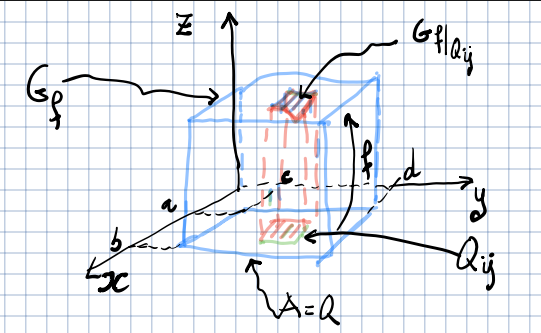 z
G_{f|Q_{ij}}
G_f
f
c
d
a
y
b
Q_{ij}
x
A=Q